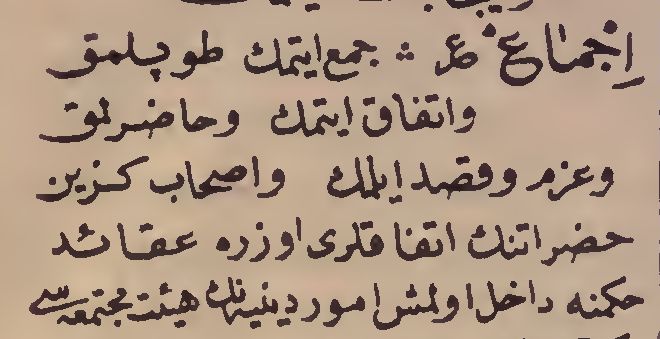 اجماع ع : جمع ايتمك طوپلمق
واتفاق ايتمك وحاضرلمق
وعزم وقصد ايلمك واصحاب كزين
حضراتنك اتفاقلرى اوزره عقائد
حكمنه داخل اولمش امور دينيه‌نك هيئت مجتمعه‌سى